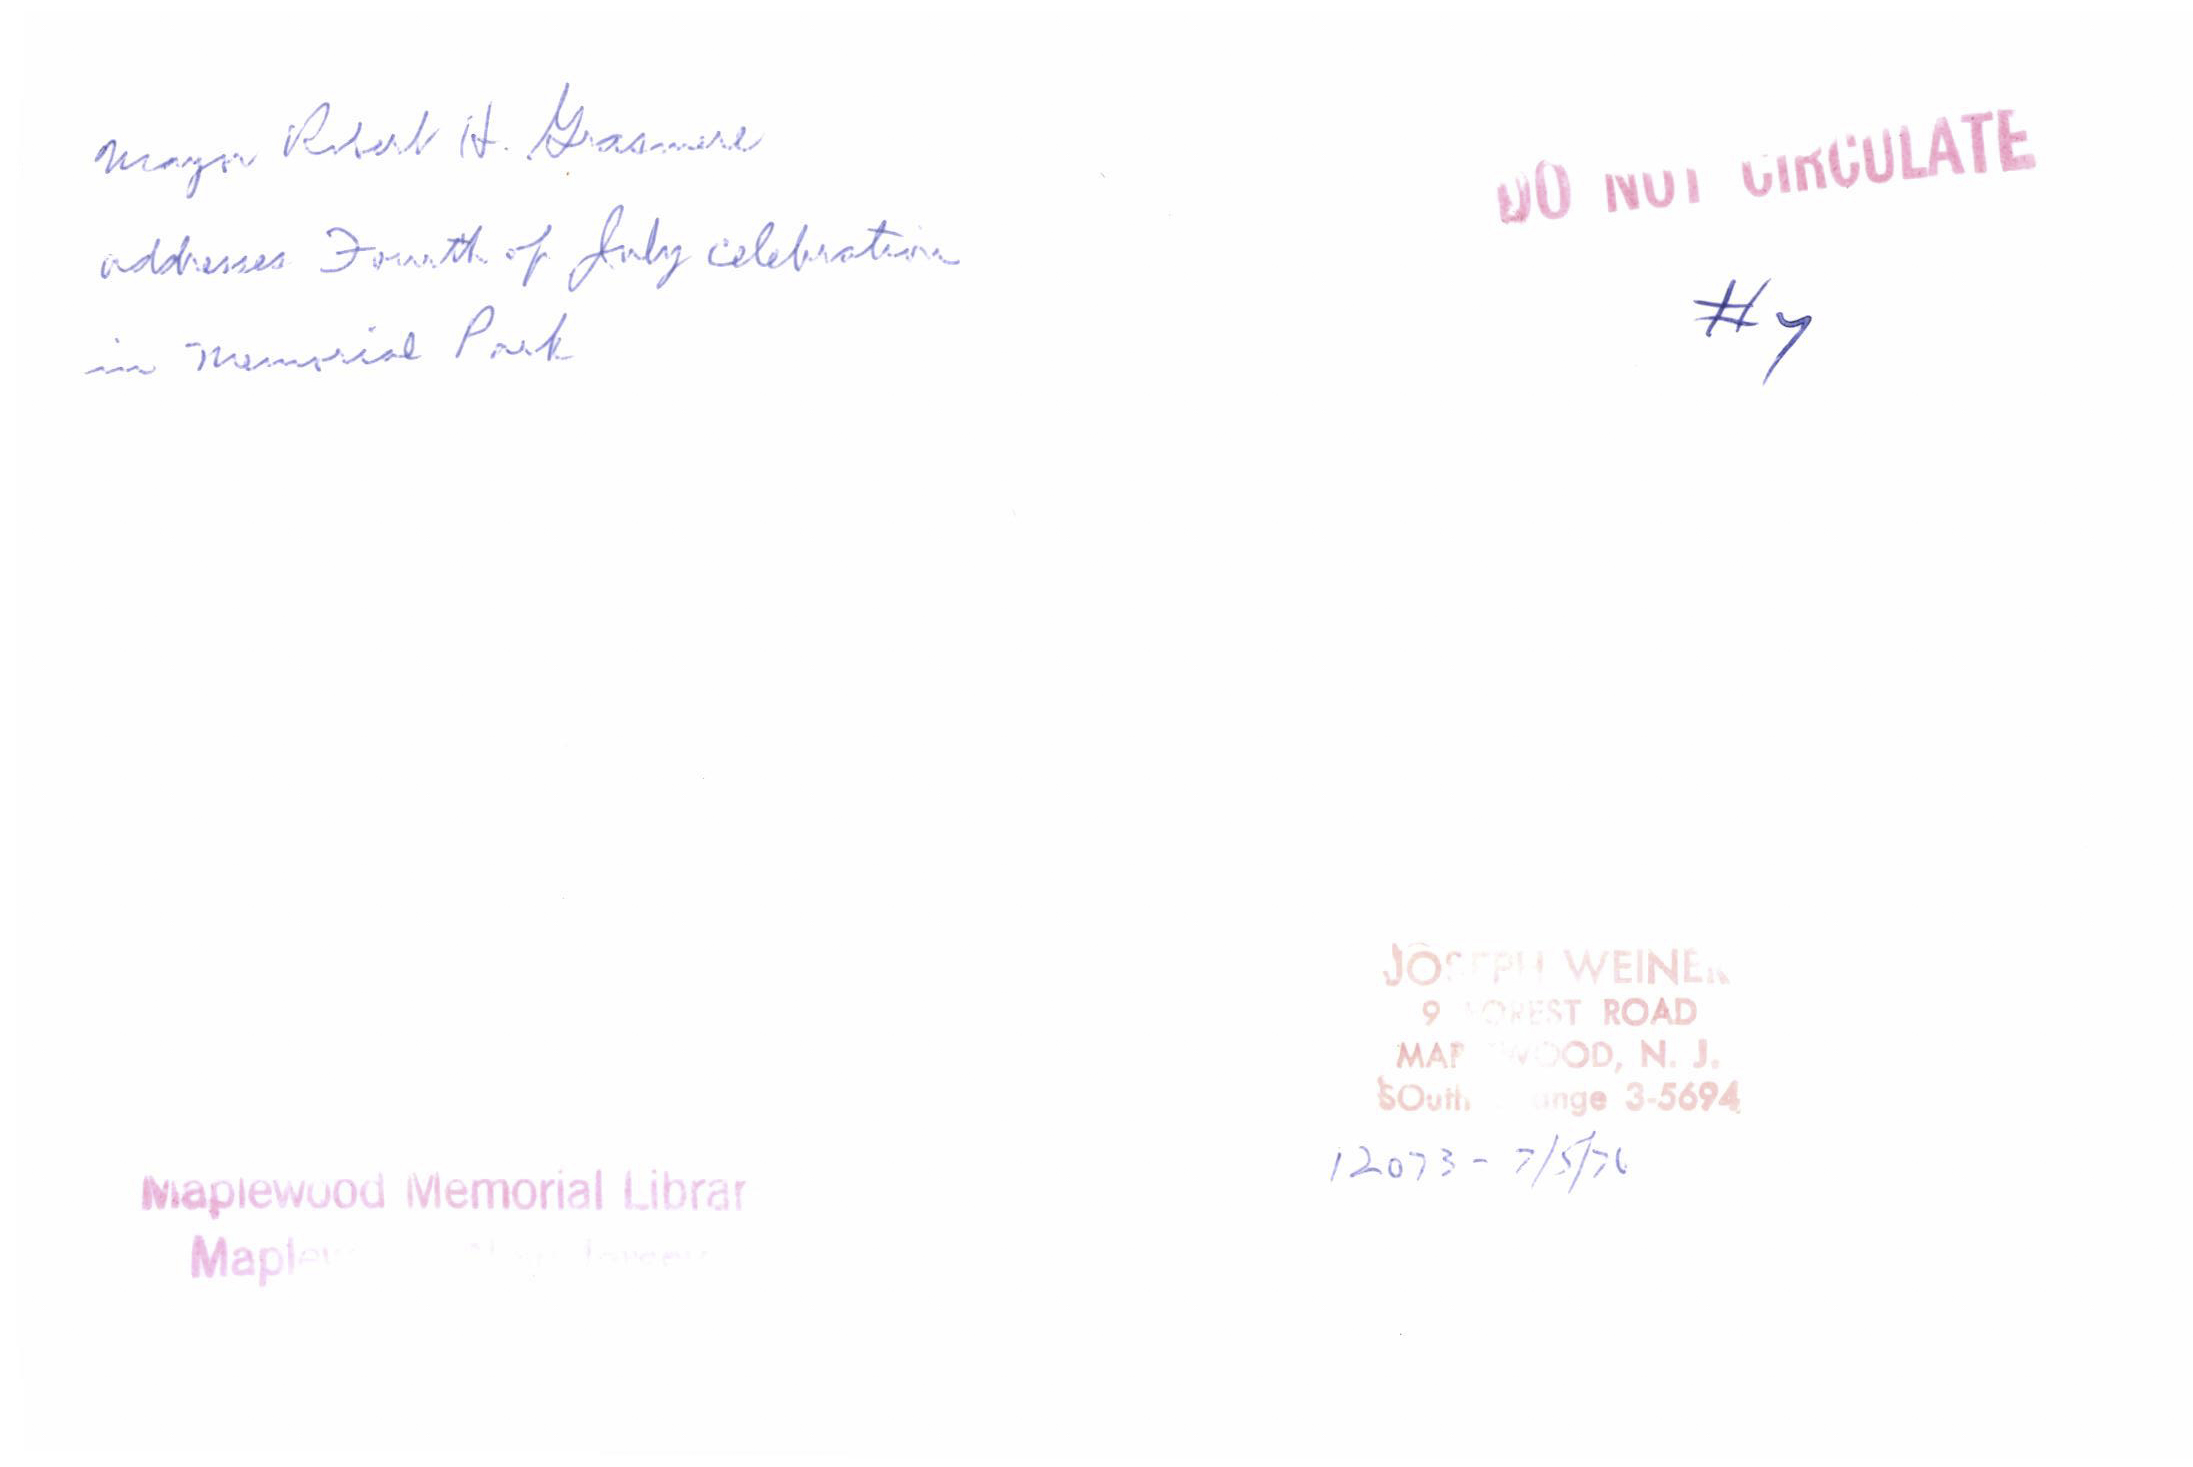 Mayor Robert H. Grasmere
addresses Fourth of July celebration
in Memorial Park
DO NOT CIRCULATE
#7
JOSEPH WEINER
9 FOREST ROAD
MAPLEWOOD, N. J.
SOuth Orange 3-5694
12073 - 7/5/76
Maplewood Memorial Librar
Maplewood, New Jersey